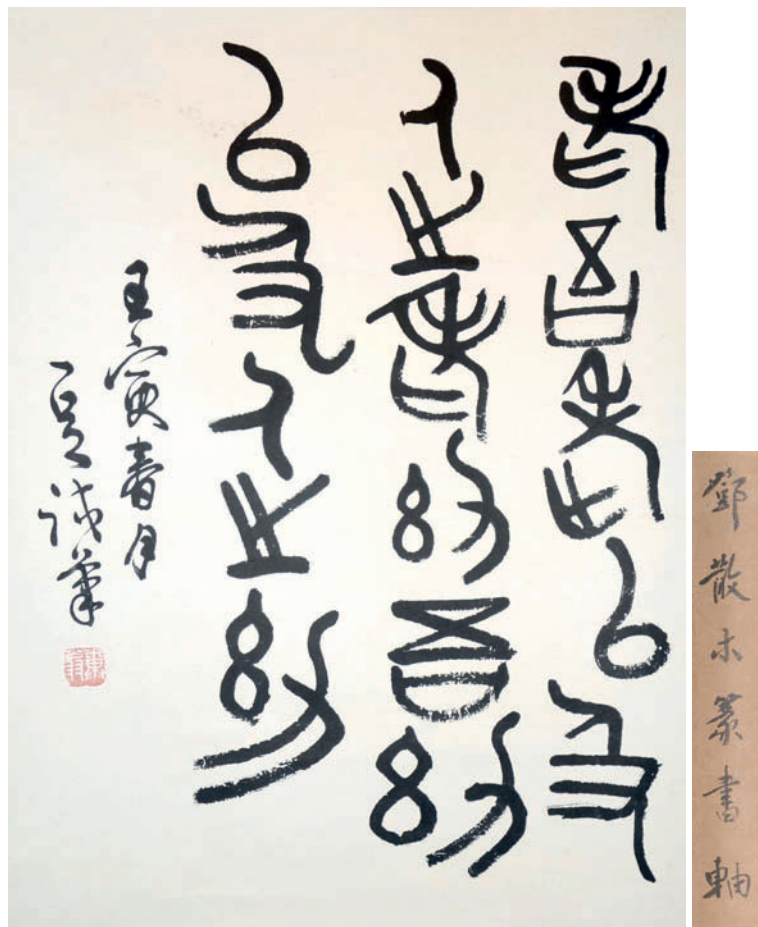 老吾老以及
人之老幼吾幼
以及人之幼
壬寅春月
一足試筆
鄧散木篆書軸